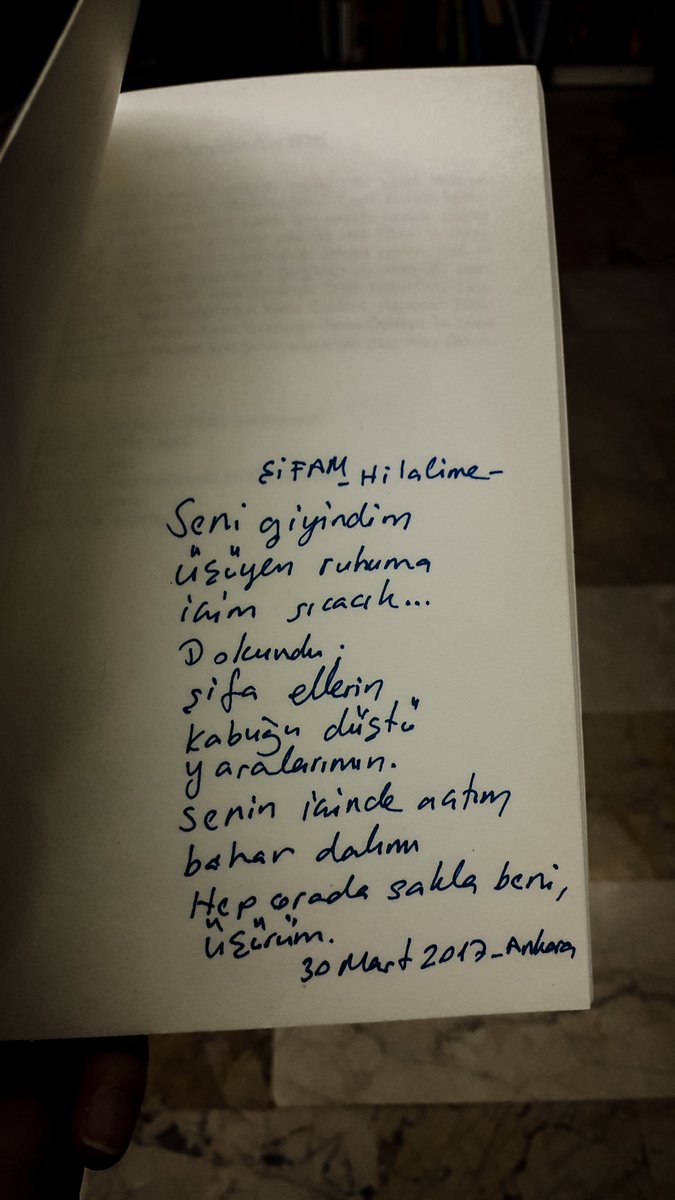 ŞİFAM - Hilalime -
Seni giyindim
üşüyen ruhuma
içim sıcacık...
Dokundu;
şifa ellerin
kabuğu düştü
yaralarımın.
Senin içinde açtım
bahar dalımı
Hep orada sakla beni,
üşürüm.
30 Mart 2017 - Ankara